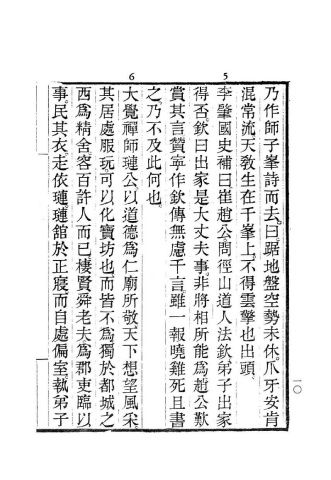 乃作師子峯詩而去。曰踞地盤空勢未休。爪牙安肯
混常流。天敎生在千峯上。不得雲擎也出頭。
5
李肇國史補曰崔趙公問徑山道人法欽弟子出家
得否欽曰出家是大丈夫事非將相所能為趙公歎
賞其言贊寧作欽傳無慮千言。雖一報曉雞死且書
之乃不及此何也。
6
大覺禪師璉公以道德為仁廟所敬天下想望風采
其居處服玩。可以化寶坊也而皆不為獨於都城之
西為精舍容百許人而已棲賢舜老夫為郡吏臨以
事。民其衣走依璉璉館於正寢而自處偏室執弟子
一〇